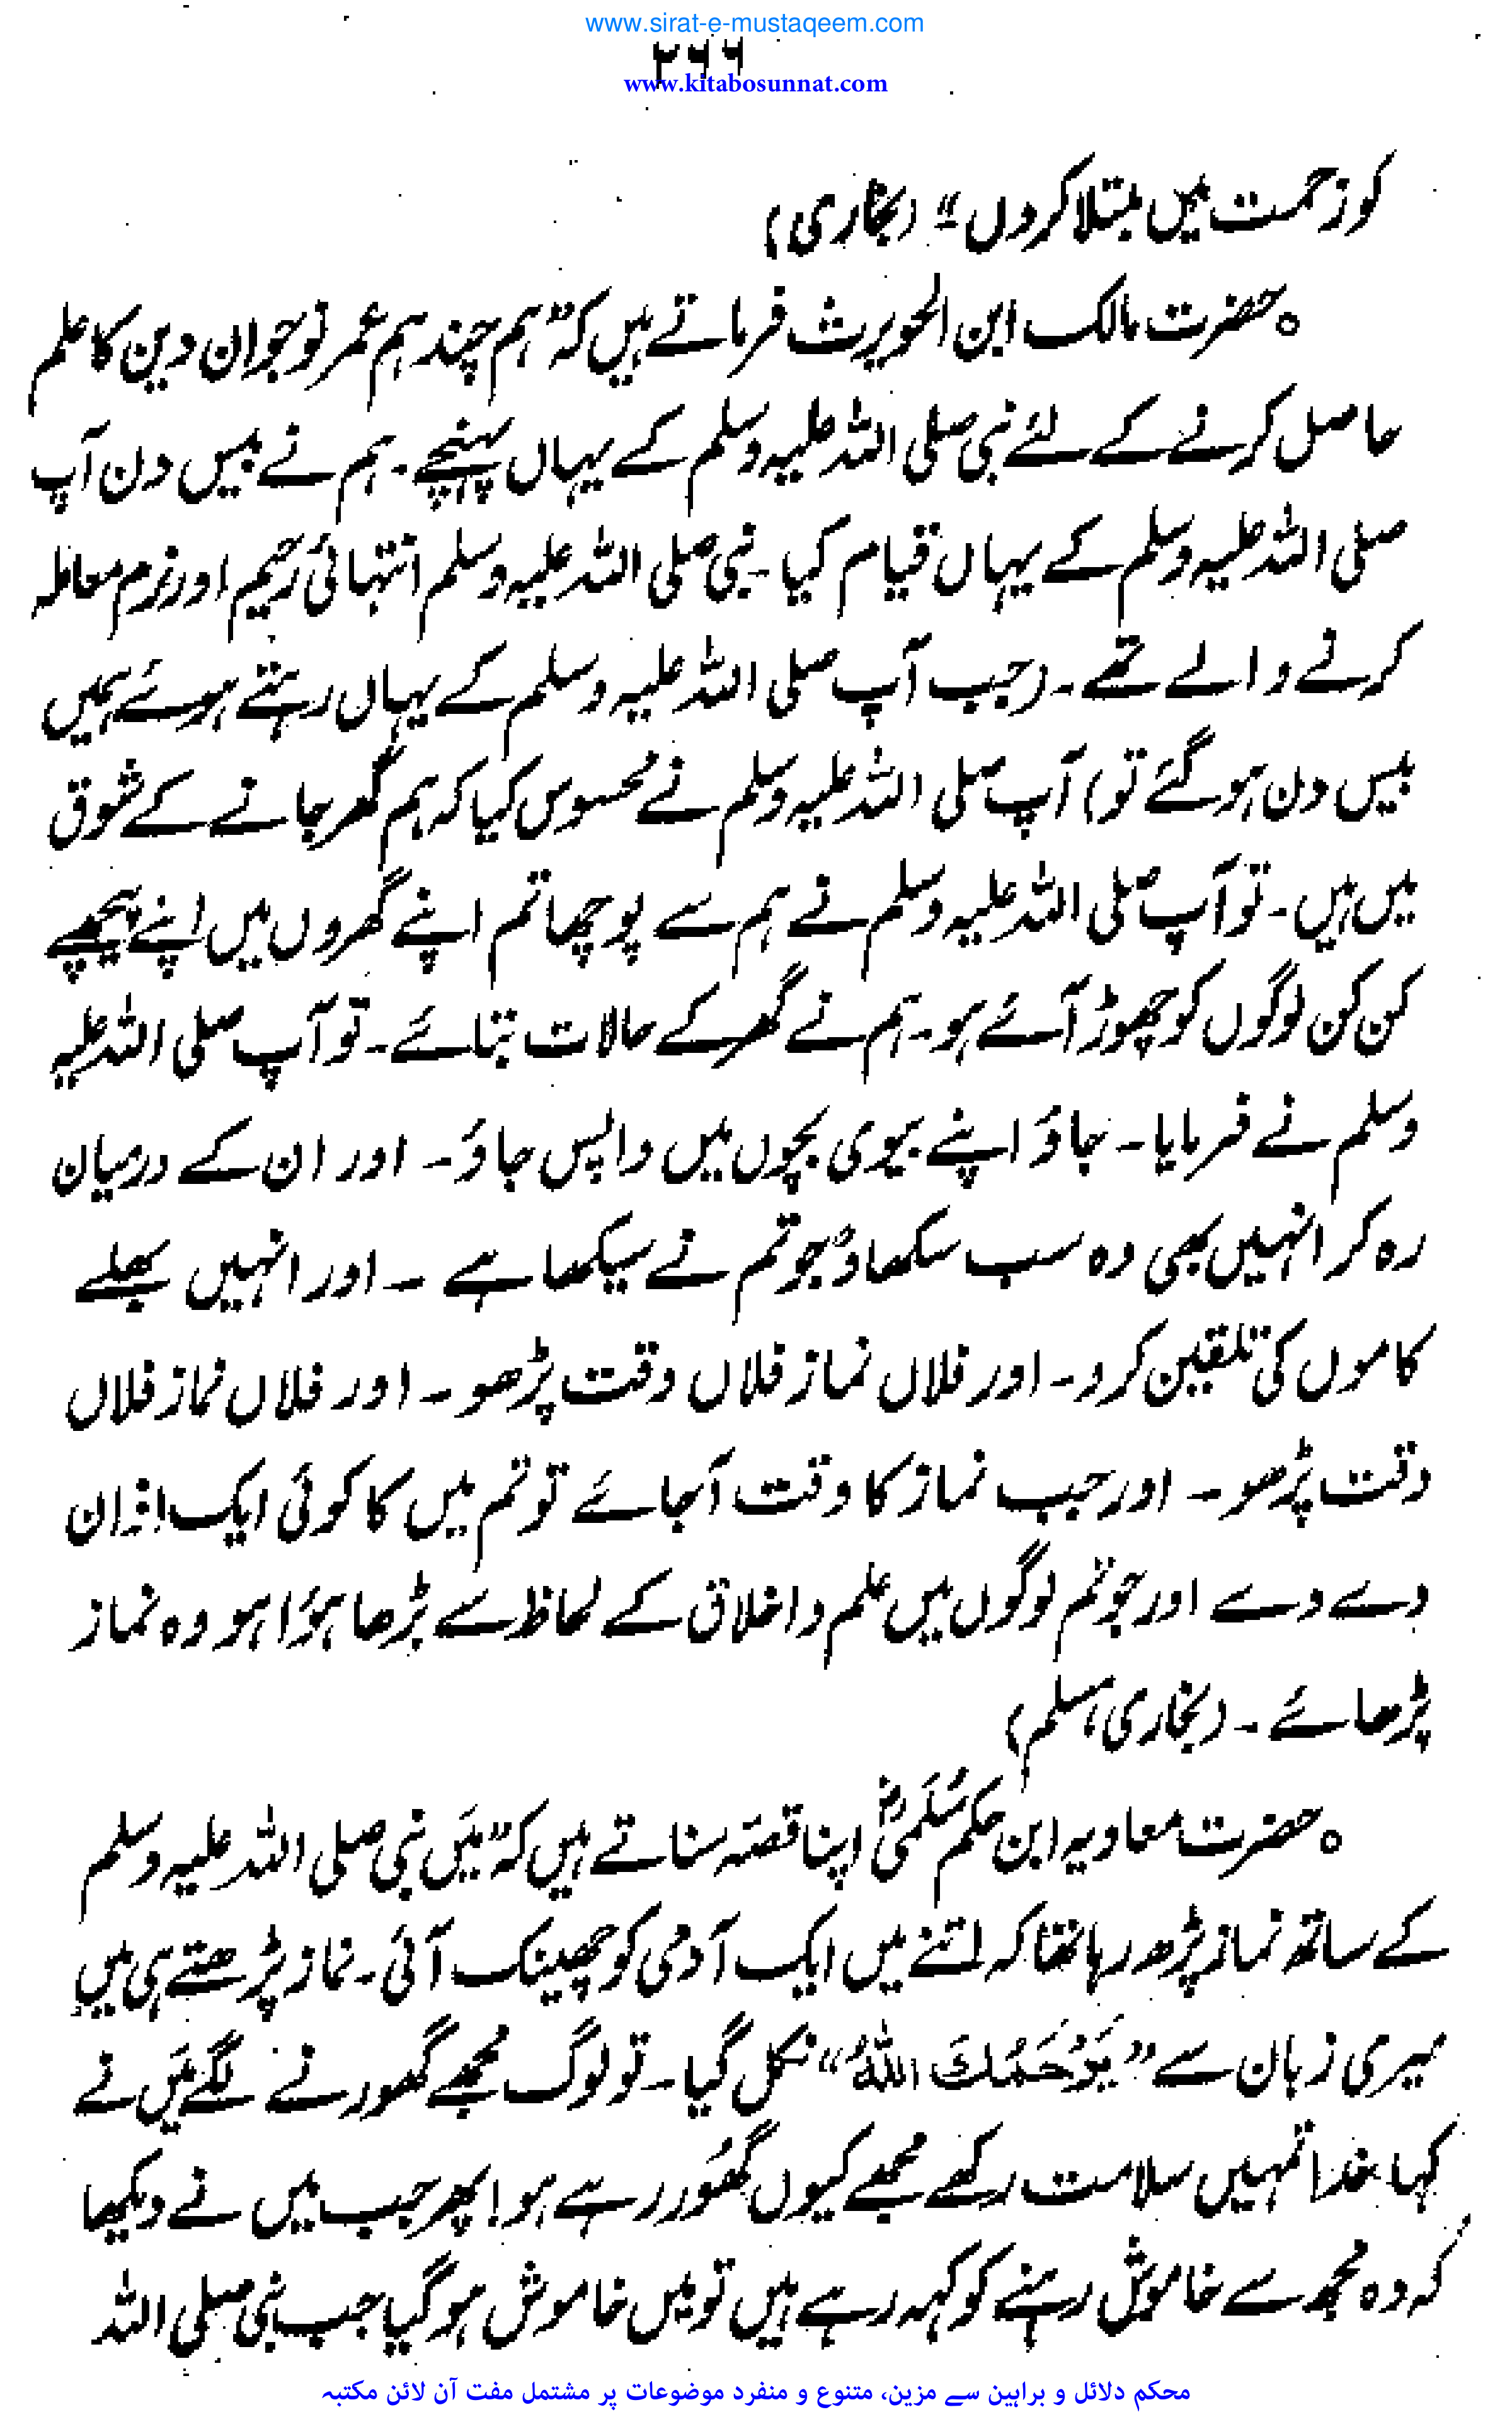 www.sirat-e-mustaqeem.com
۲۶۶
www.kitabosunnat.com
کو زحمت میں مبتلا کر دوں" (بخاری)
○ حضرت مالک ابن الحویرث فرماتے ہیں کہ "ہم چند ہم عمر نوجوان دین کا علم
حاصل کرنے کے لئے نبی صلی اللہ علیہ وسلم کے یہاں پہنچے۔ ہم نے بیس دن آپ
صلی اللہ علیہ وسلم کے یہاں قیام کیا۔ نبی صلی اللہ علیہ وسلم انتہائی رحیم اور نرم معاملہ
کرنے والے تھے۔ (جب آپ صلی اللہ علیہ وسلم کے یہاں رہتے ہوئے ہمیں
بیس دن ہو گئے تو) آپ صلی اللہ علیہ وسلم نے محسوس کیا کہ ہم گھر جانے کے شوق
میں ہیں۔ تو آپ صلی اللہ علیہ وسلم نے ہم سے پوچھا تم اپنے گھروں میں اپنے پیچھے
کن کن لوگوں کو چھوڑ آئے ہو۔ ہم نے گھر کے حالات بتائے۔ تو آپ صلی اللہ علیہ
وسلم نے فرمایا۔ جاؤ اپنے بیوی بچوں میں واپس جاؤ۔ اور ان کے درمیان
رہ کر انہیں بھی وہ سب سکھاؤ جو تم نے سیکھا ہے ۔ اور انہیں بھلے
کاموں کی تلقین کرو۔ اور فلاں نماز فلاں وقت پڑھو۔ اور فلاں نماز فلاں
وقت پڑھو۔ اور جب نماز کا وقت آجائے تو تم میں کا کوئی ایک اذان
دے دے اور جو تم لوگوں میں علم و اخلاق کے لحاظ سے بڑھا ہؤا ہو وہ نماز
پڑھائے۔ (بخاری، مسلم)
○ حضرت معاویہ ابن حکم سُلَمیؓ اپنا قصّہ سناتے ہیں کہ "مَیں نبی صلی اللہ علیہ وسلم
کے ساتھ نماز پڑھ رہا تھا کہ اتنے میں ایک آدمی کو چھینک آئی۔ نماز پڑھتے ہی میں
میری زبان سے "یَرْحَمُكَ اللّٰهُ" نکل گیا۔ تو لوگ مجھے گھورنے لگے مَیں نے
کہا خدا تمہیں سلامت رکھے مجھے کیوں گھُور رہے ہو! پھر جب میں نے دیکھا
کہ وہ مجھ سے خاموش رہنے کو کہہ رہے ہیں تو میں خاموش ہو گیا جب نبی صلی اللہ
محکم دلائل و براہین سے مزین، متنوع و منفرد موضوعات پر مشتمل مفت آن لائن مکتبہ